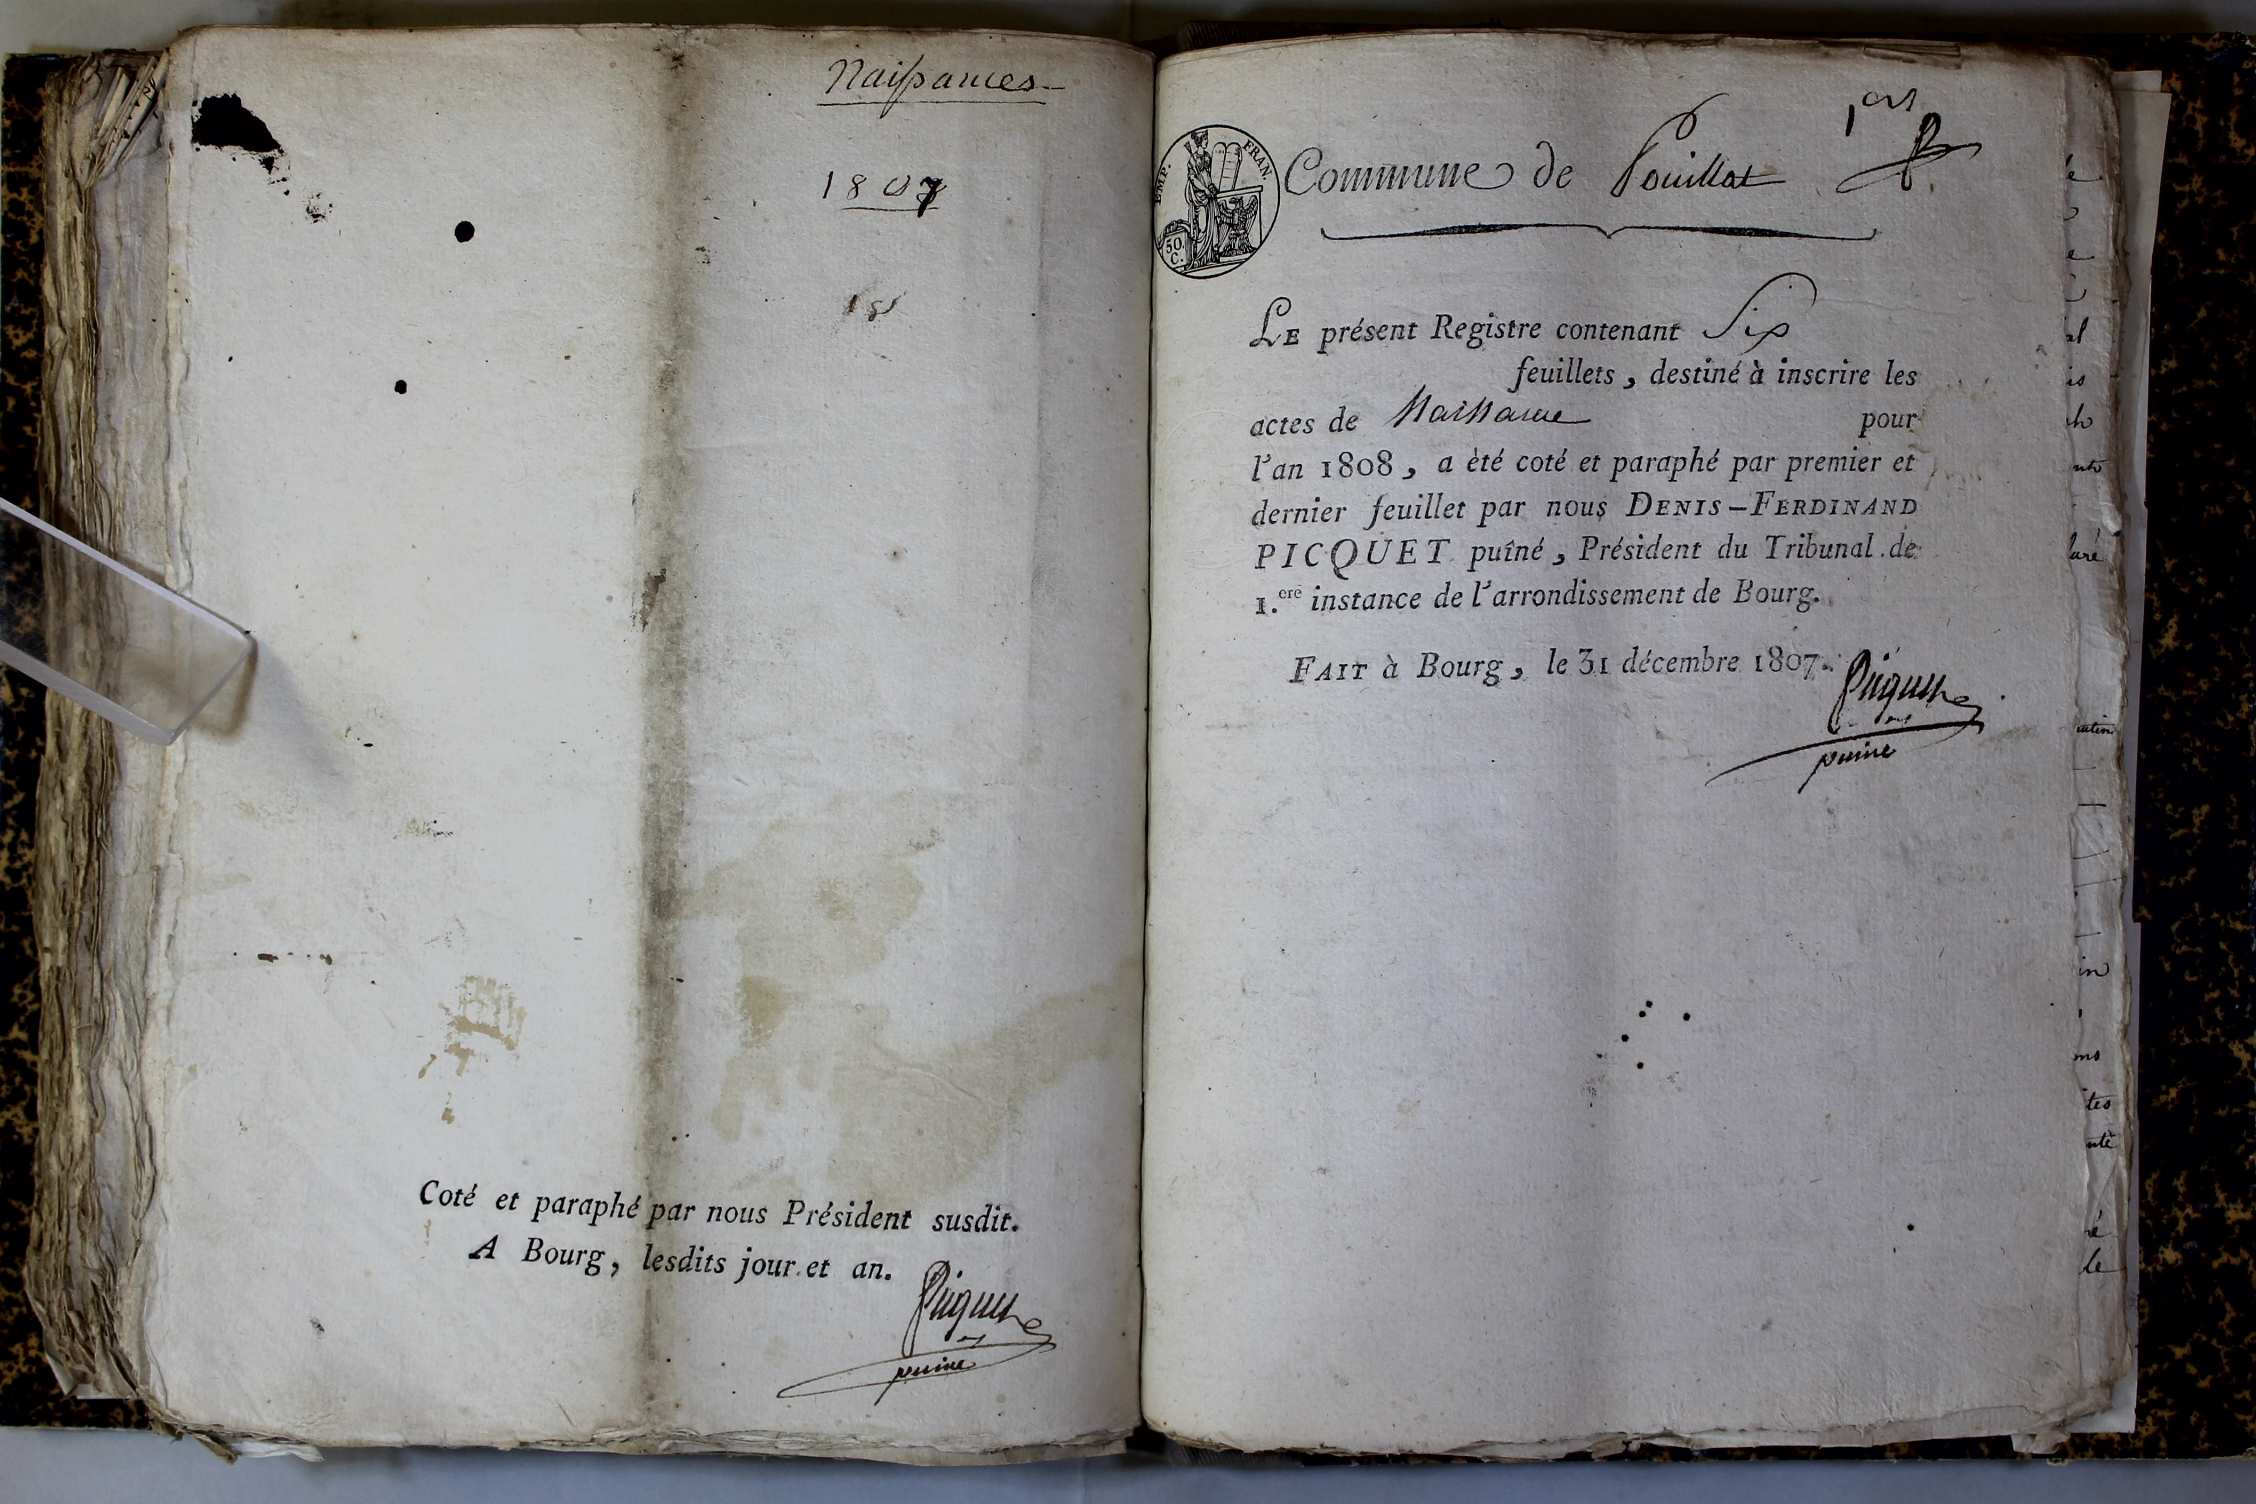 Naissances
1807
18
Coté et paraphé par nous Président susdit.
A Bourg, lesdits jour et an.
Picquet
puiné
1er
EMP. FRAN.
50.
C.
Commune de Pouillat
LE présent Registre contenant Six
feuillets, destiné à inscrire les
actes de Naissance pour
l'an 1808, a èté coté et paraphé par premier et
dernier feuillet par nous DENIS-FERDINAND
PICQUET puîné, Président du Tribunal de
1.ere instance de l'arrondissement de Bourg.
FAIT à Bourg, le 31 décembre 1807.
Picquet
puiné